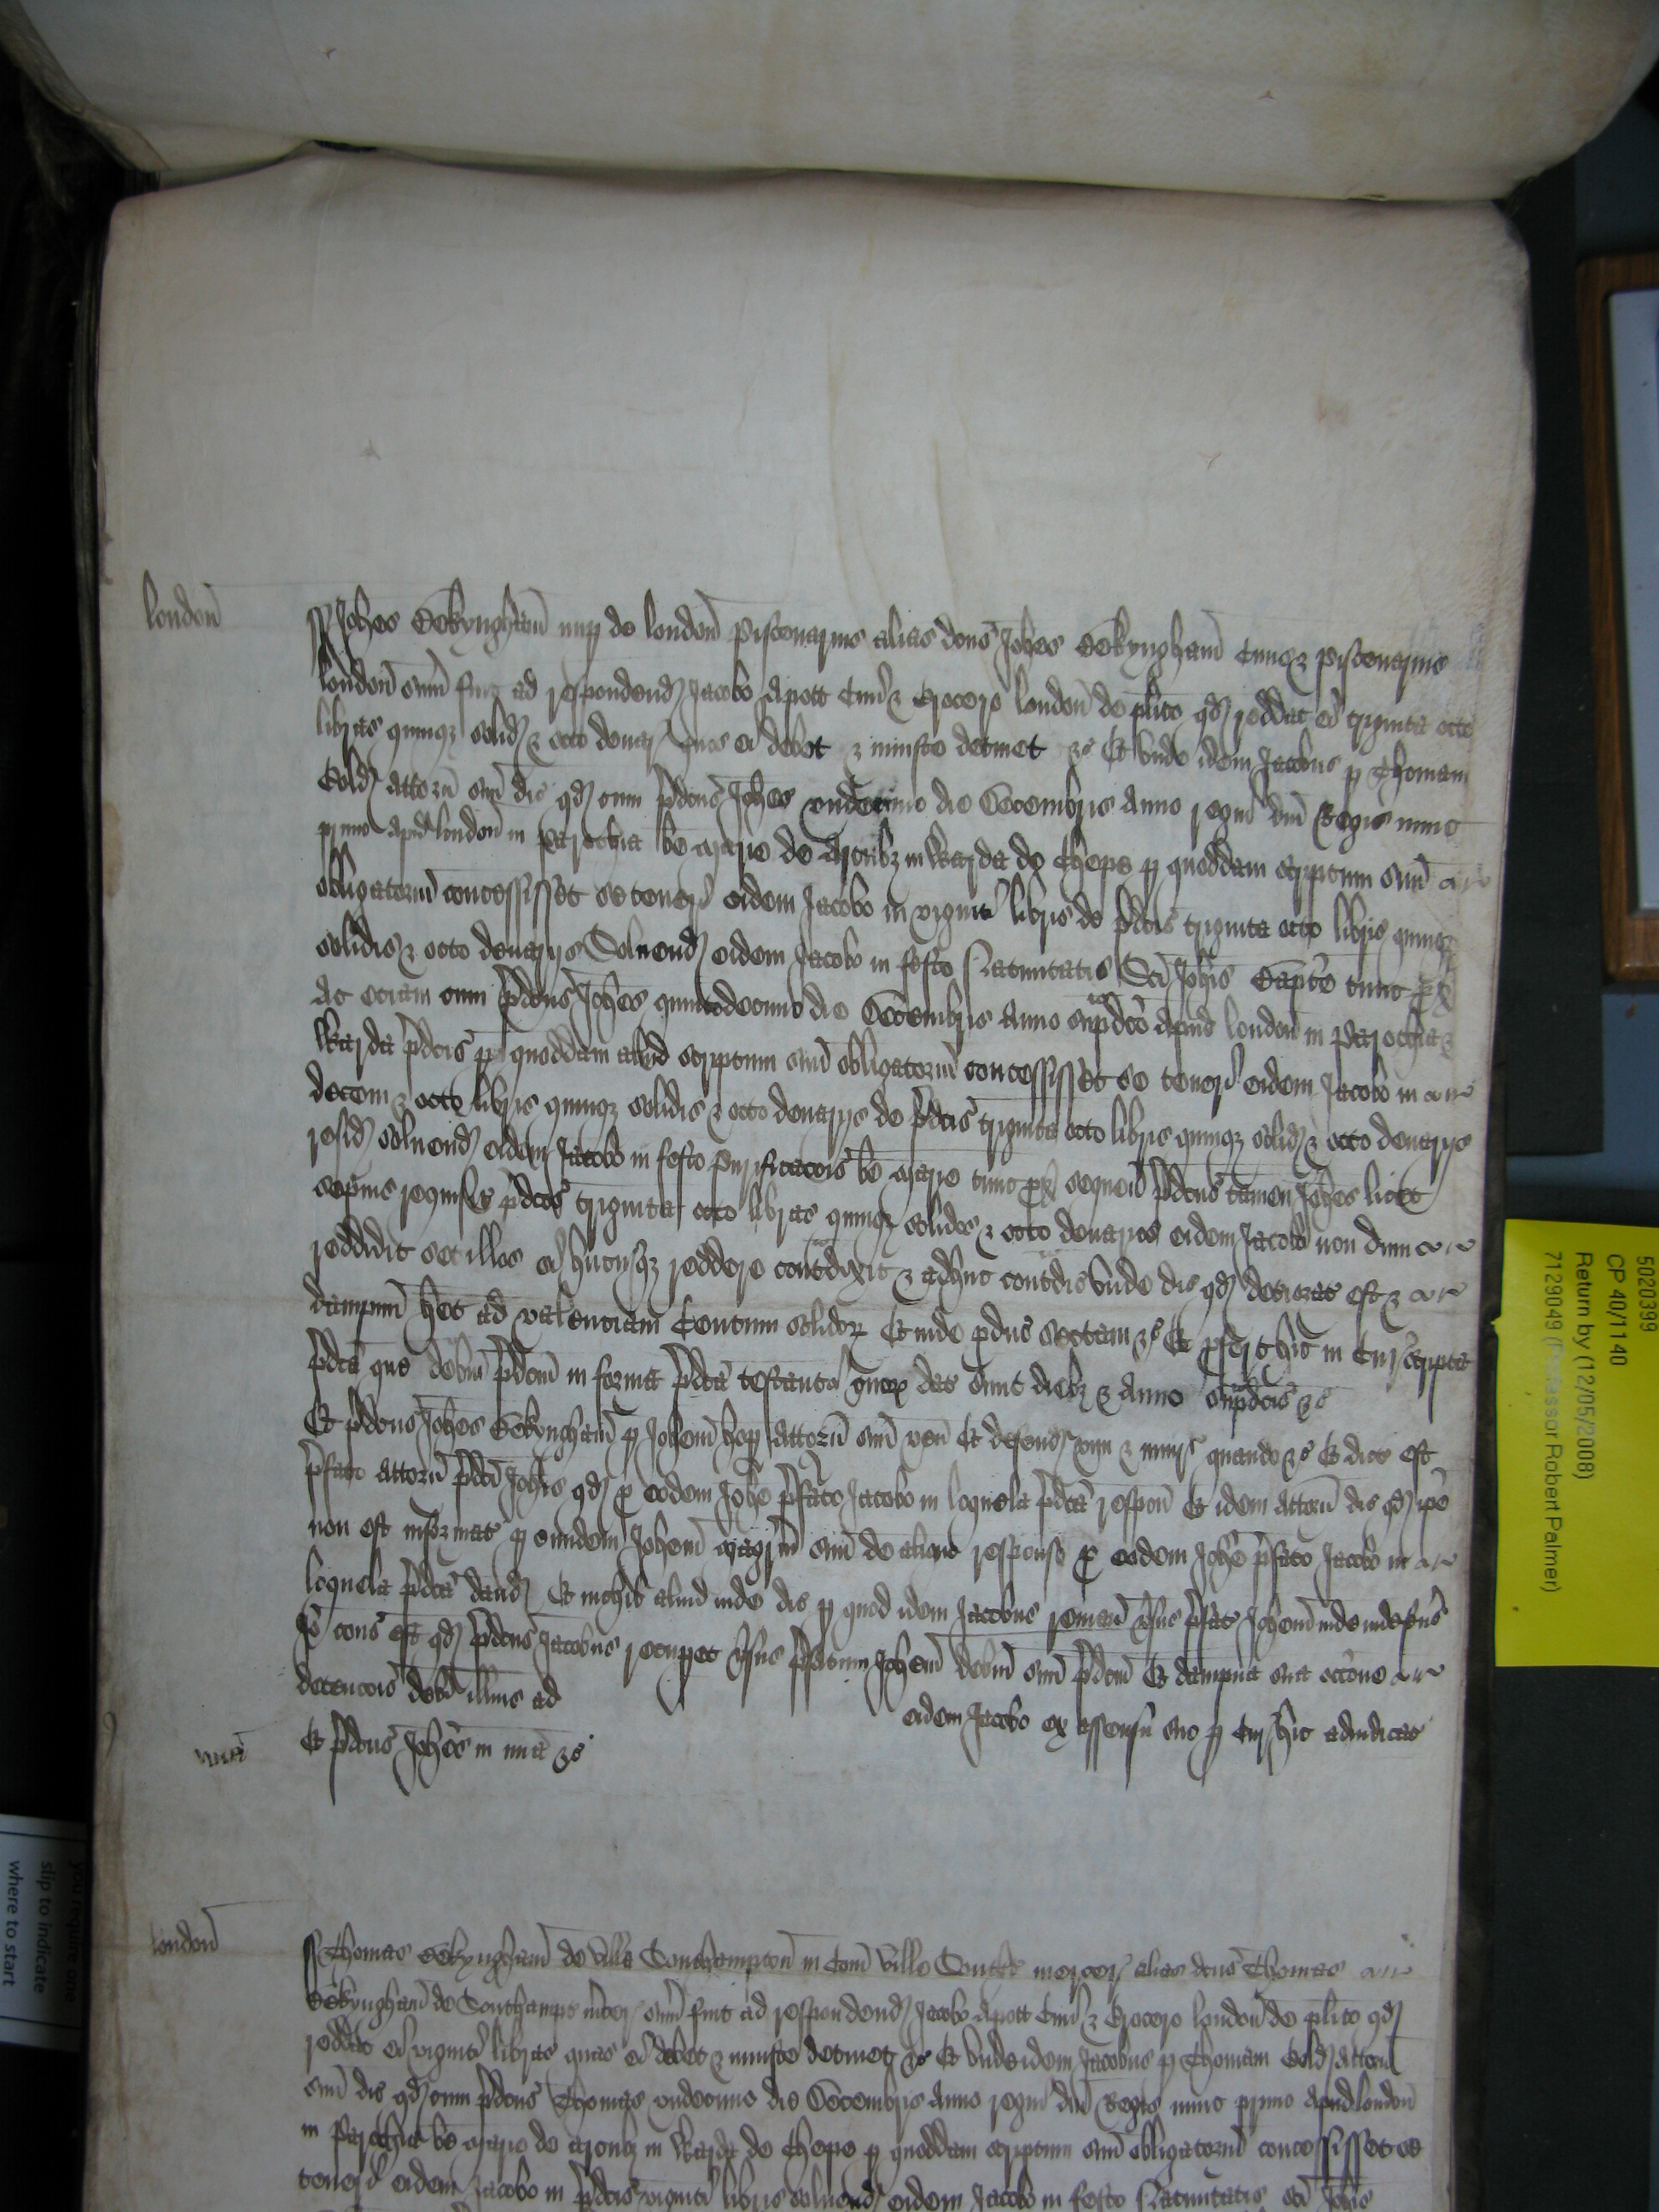 london̄
Joħes Bekyngham̄ nup de london̄ Piscenarius alias dc̄us Joħes Bekyngham̄ Ciuis & piscenarius
london̄ sum̄ fuit ad respondend Jacobo Apott Ciui & Grocero london̄ de pl̄ito qd reddat ei triginta octo
libras quinqz solid & octo denar quos ei debet & iniuste detinet &c Et vnde idem Jacobus p Thomam
attorn̄ sūu dic̄ qd cum p̄dc̄us Joħes vndecimo die Decembris Anno regni dn̄i Regis nunc
primo apud london̄ in parochia bē Marie de Arcubz in Warda de Chepe p quoddam scriptum sūu
obligatoriū concessisset se teneri eidem Jacobo in viginti libris de p̄dc̄is triginta octo libris quinqz
solidis & octo denarijs Soluend eidem Jacobo in festo Natiuitatis Sc̄i Joħis Bapt̄e tunc px̄
Ac eciam cum p̄dc̄us Joħes quintodecimo die Decembris Anno sup̄dc̄o apud london̄ in parochia &
Warda p̄dc̄is p quoddam aliud scriptum sūu obligatoriū concessisset se teneri eidem Jacobo in
decem & octo libris quinqz solidis & octo denarijs de p̄dc̄is triginta octo libris quinqz solid & octo denarijs
resid soluend eidem Jacobo in festo Purificac̄ois bē Marie tunc px̄ sequen̄ p̄dc̄us tamen Joħes licet
sepius requisit p̄dc̄as triginta octo libras quinqz solidos & octo denarios eidem Jacobo non dum
reddidit set illas ei hucusqz reddere contradixit & adhuc contradic̄ vnde dic̄ qd deteriorat est &
dampnū h̄et ad valenciam Centum solidor Et inde p̄duc̄ sectam &c Et p̄fert hic in Cur scripta
p̄dc̄a que debitū p̄dc̄m in forma p̄dc̄a testantur quor dat sunt diebz & Anno sup̄dc̄is &c
Et p̄dc̄us Joħes Bekyngham̄ p Joħem̄ attorn̄ sūu ven̄ Et defend vim & iniur quando &c Et dic̄o est
p̄fato attorn̄ p̄dc̄i Joħis qd p eodem Joħe p̄fato Jacobo in loquela p̄dc̄a respon̄ Et idem Attorn̄ dic̄ qd ip̄e
non est informat p eundem Joħem̄ magr̄m sūu de aliquo responso p eodem Joħe p̄fato Jacobo in
loquela p̄dc̄a dand Et nichil aliud inde dic̄ p quod idem Jacobus reman̄ vsus p̄fat Joħem̄ inde indefens̄
Jo cons̄ est qd p̄dc̄us Jacobus recupet vsus p̄fatum Joħem̄ debitū sūu p̄dc̄m Et dampna sua occ̄one
detenc̄ois debiti illius ad eidem Jacobo ex assensu suo p Cur hic adiudicat
mīa
Et p̄dc̄us Joħes in mīa &c
london̄
Thomas Bekyngham̄ de villa Southampton̄ in Com̄ ville mercer alias dc̄us Thomas
Bekyngham̄ de sum̄ fuit ad respondend Jacobo Apott Ciui & Grocero london̄ de pl̄ito qd
reddat ei viginti libras quas ei debet & iniuste detinet &c Et vnde idem Jacobus p Thomam attorn̄
sūu dic̄ qd cum p̄dc̄us Thomas vndecimo die Decembris Anno regni dn̄i Regis nunc primo apud london̄
in Parochia bē Marie de Arcubz in Warda de Chepe p quoddam scriptum sūu obligatoriū concessisset se
teneri eidem Jacobo in p̄dc̄is viginti libris soluend eidem Jacobo in festo Natiuitatis Sc̄i Joħis
5020399
CP 40/1140
Return by (12/05/2008)
7129049 (Professor Robert Palmer)
you require one
slip to indicate
where to start